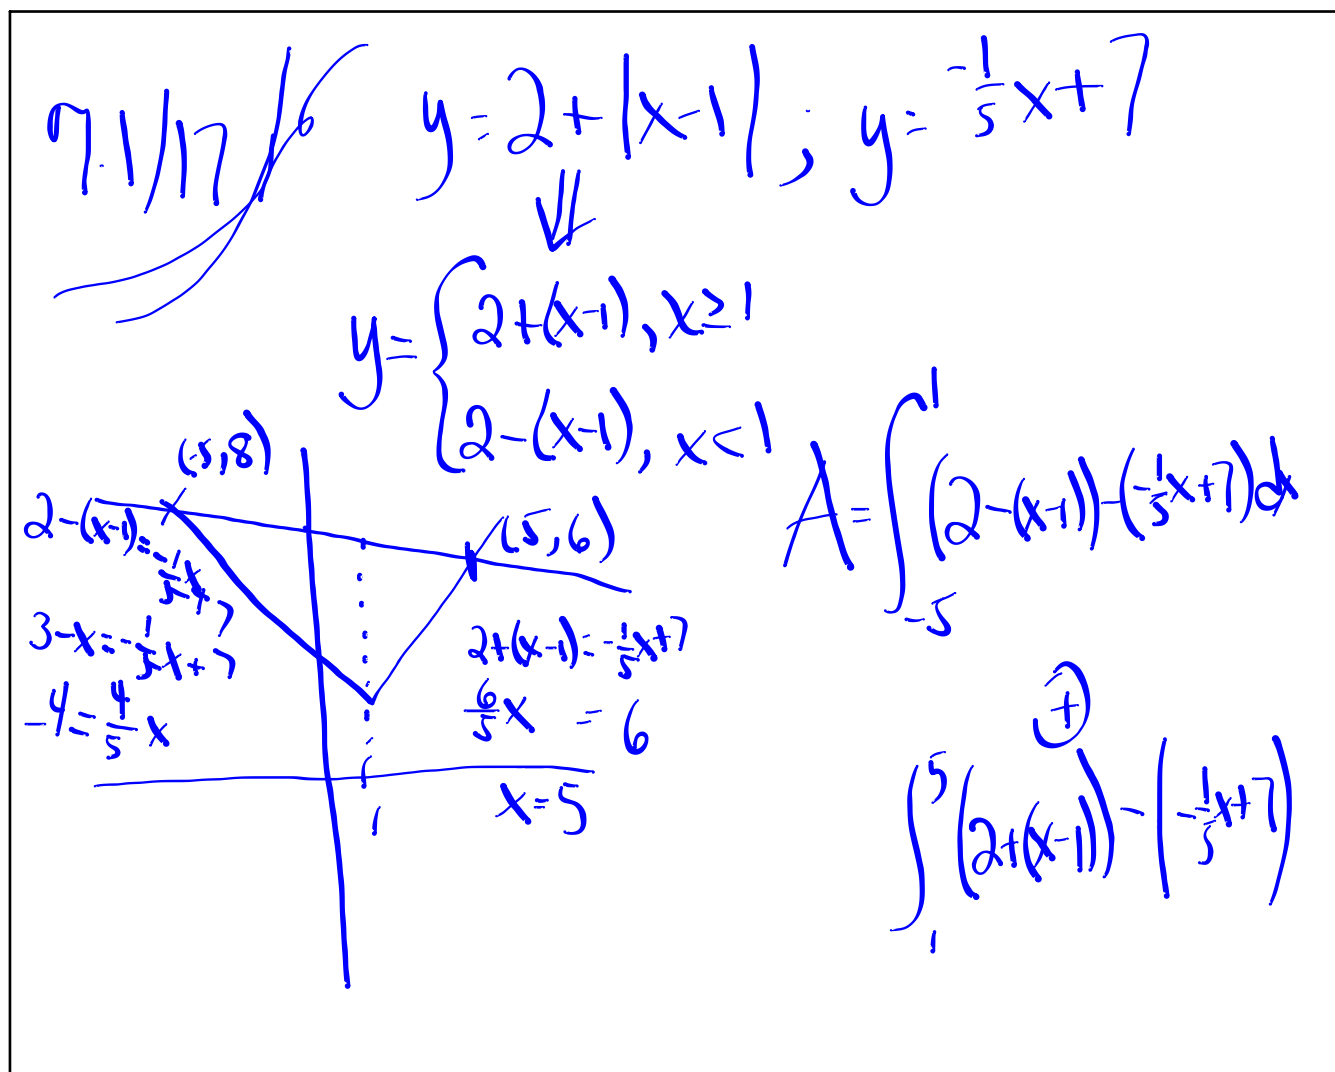 7.1/17 y = 2 + |x-1| ; y = -1/5 x + 7
⇓
y = { 2+(x-1), x ≥ 1
2-(x-1), x < 1
(-5,8)
2-(x-1) = -1/5 x + 7
3-x = -1/5 x + 7
-4 = 4/5 x
(5,6)
2+(x-1) = -1/5 x + 7
6/5 x = 6
x = 5
1
A = ∫_{-5}^{1} (2-(x-1)) - (-1/5 x + 7) dx
+
∫_{1}^{5} (2+(x-1)) - (-1/5 x + 7)